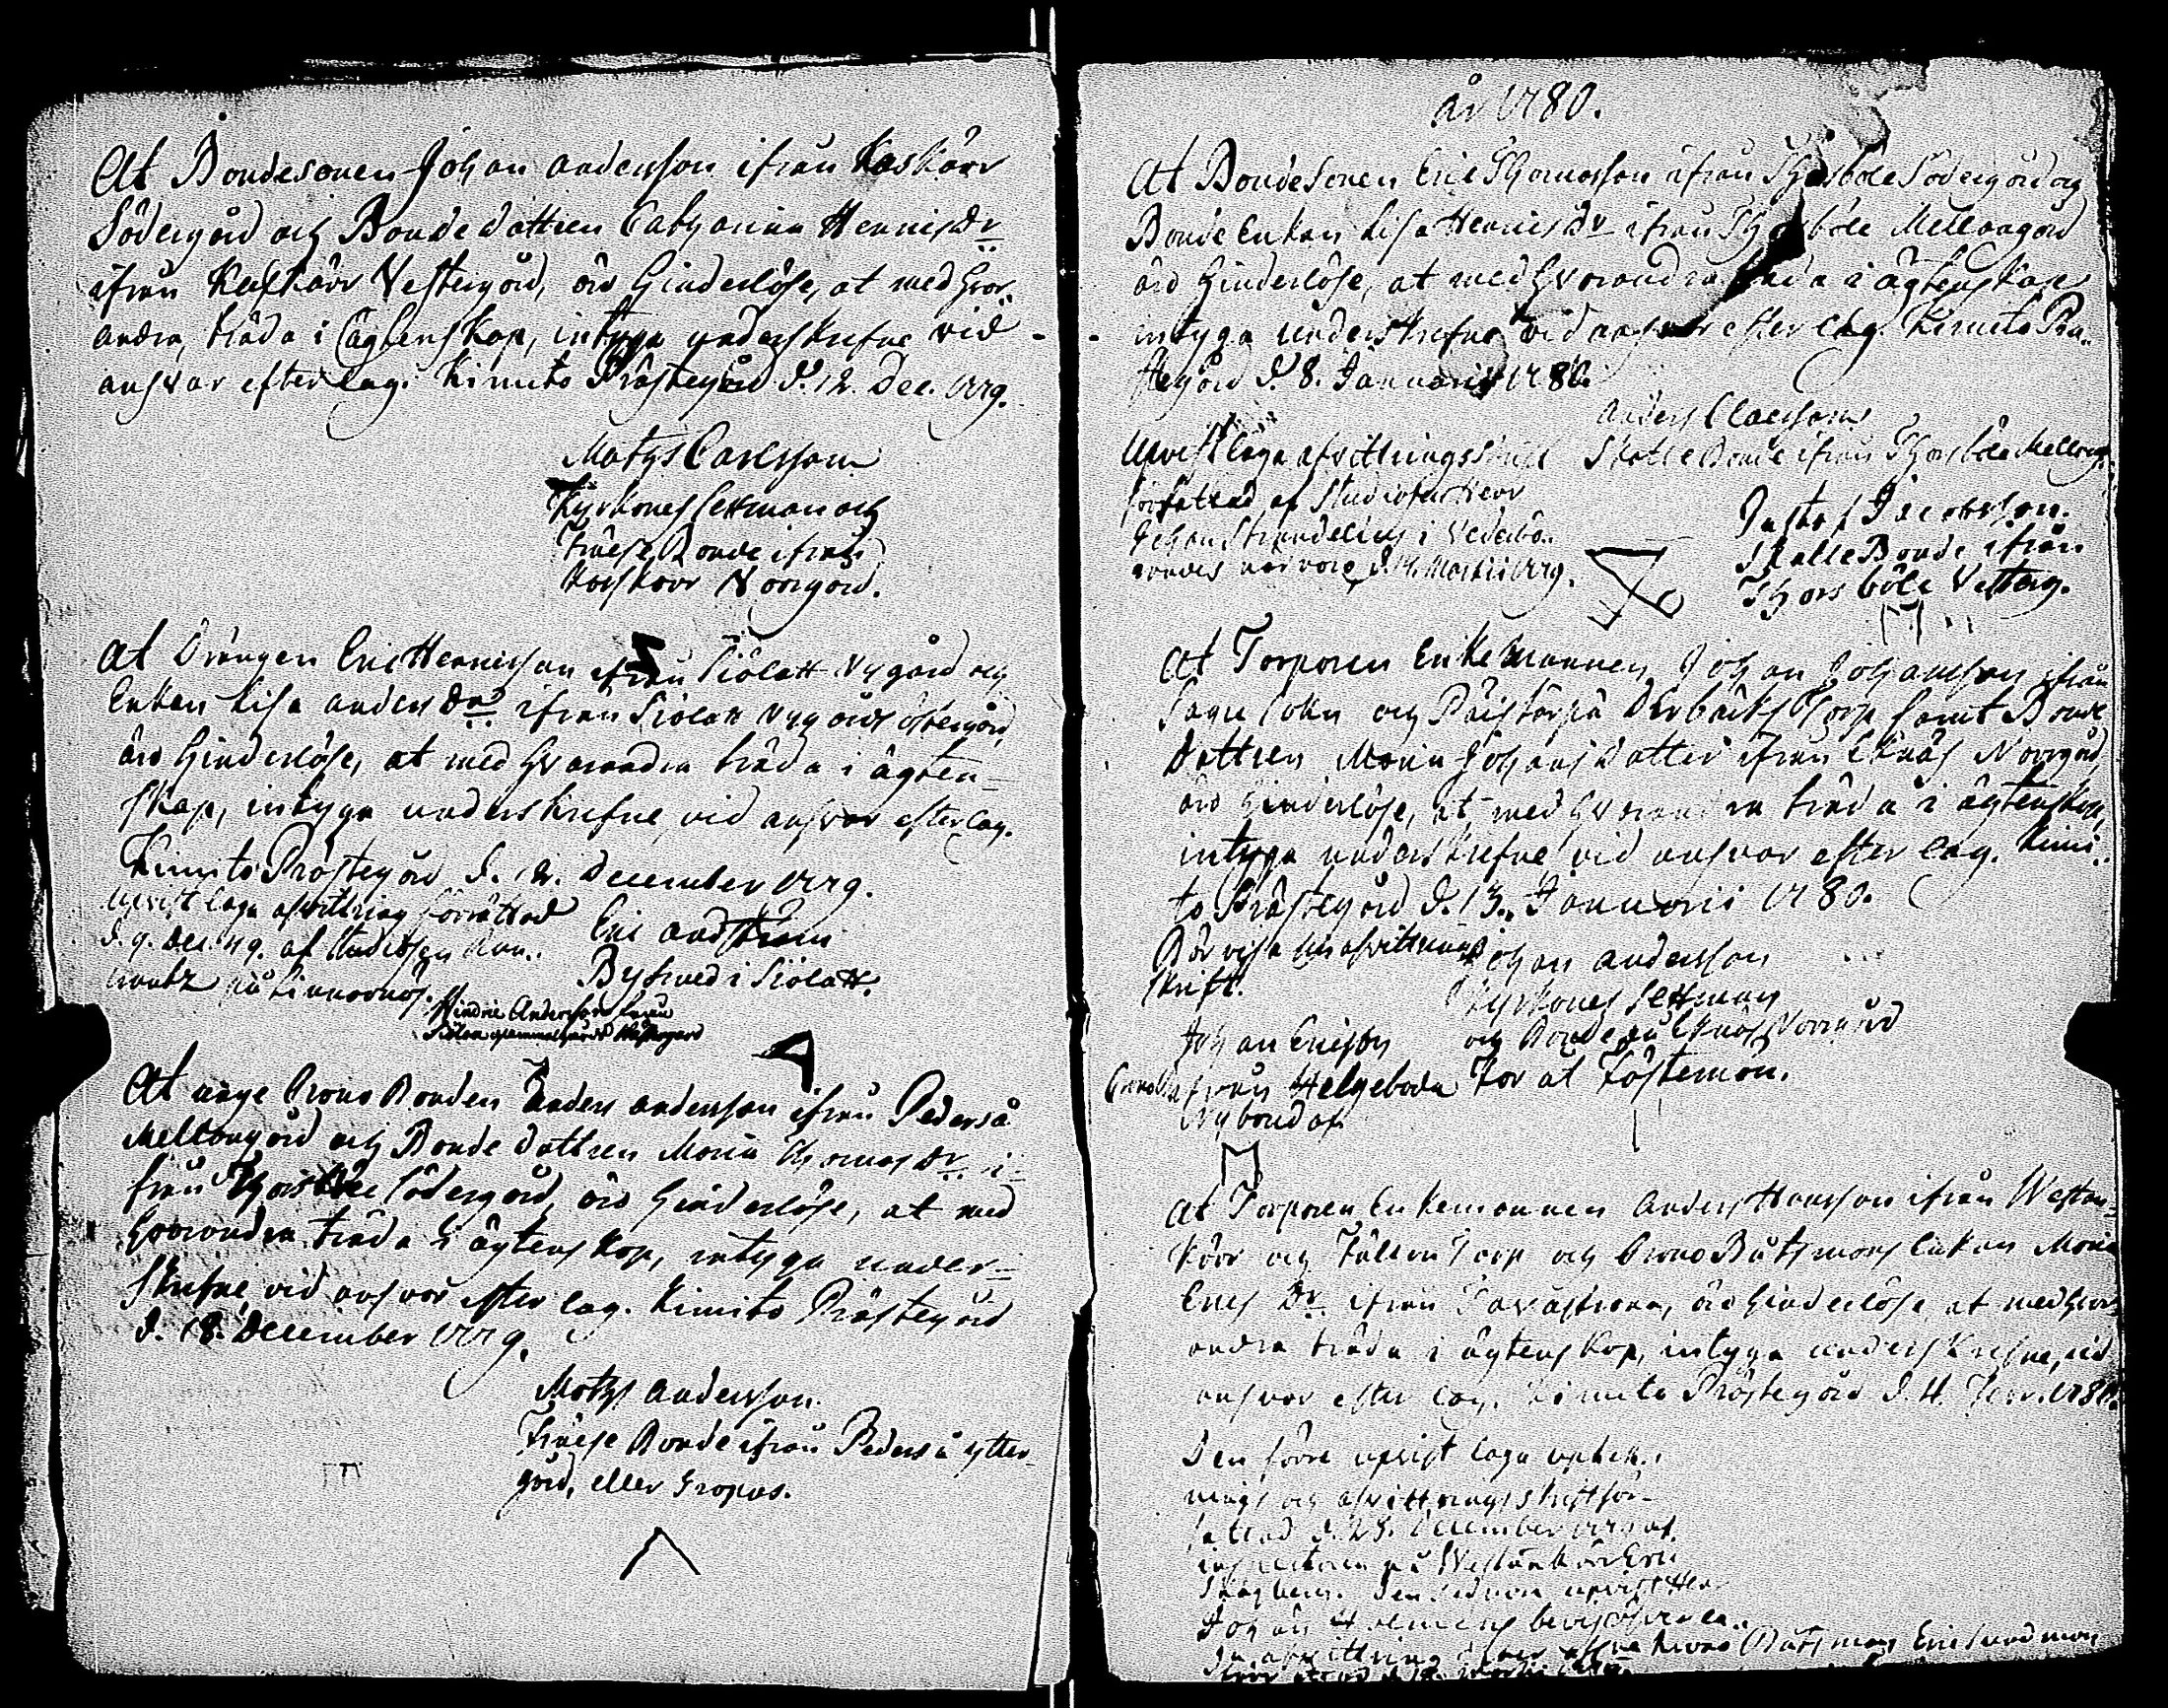 At Bondesonen Johan andersson ifrån Kaskärr
Södergård och Bondedottren Catharina Henricsdr
ifrån Kaskärr Vestergård, äro hinderlöse, at med hvar-
andra, träda i ägtenskap, intyga underskrefne vid
answar efter lag. Kimito Prästegård d. 12. Dec. 1779.
Mathys Carlsson
Kyrkones Sexman och
Frälse Bonde ifrån
Kaskärr Norrgård.
At Drängen Eric Henricsson ifrån Siölax Nygård och
Enkan Lisa andersdr ifrån Siölax Nygårds östergård,
äro hinderlöse, at med hvarandra träda i ägten-
skap, intyga underskrefne, vid answar efter lag.
Kimito Prästegård d. 12. December 1779.
Upvist laga afvittring förrättad
d. 9. Dec. 79. af
Eric
i Siölax.
Hindric Andersson ifrån
At unge Crono Bonden Anders andersson ifrån Pederså
Mellangård och Bonde dottren Maria Thomasdr i-
från Thorsböle Södergård, äro hinderlöse, at med
hvarandra träda i ägtenskap, intyga under-
skrefne vid answar efter lag. Kimito Prästegård
d. 18. December 1779.
Mathys andersson.
Frälse Bonde ifrån Pederså ytter-
gård, eller Gropas.
år 1780.
At Bondesonen Eric Thomasson ifrån Thorsböle Södergård och
Bonde Enkan Lisa Henricsdr ifrån Thorsböle Mellangård
äro hinderlöse, at med hvarandra träda i ägtenskap
intyga underskrefne vid answar efter lag. Kimito Prä-
stegård d. 8. Januarii 1780.
Anders Claesson
Skatte Bonde ifrån Thorsböle Mellang.
Upvist laga afvittringsskrift
författad af Studiosus Herr
Johan Strandelius i
Gustaf Jacobsson.
Skatte Bonde ifrån
Thorsböle Vesterg.
At Torparen Enkemannen Johan Johansson ifrån
Sagu Sokn och Torp samt Bonde
Dottren Maria Johansdotter ifrån Eknäs Norrgård,
äro hinderlöse, at med hvarandra träda i ägtenskap,
intyga underskrefne vid answar efter lag. Kimi-
to Prästegård d. 13. Januarii 1780.
Bör visa sin afvittrings
skrift.
Johan andersson
Kyrkones Sexman
och Bonde på Eknäs Norrgård
Johan Ericsson
ifrån Helgeboda
För at Fästemön.
At Torparen Enkemannen Anders Hansson ifrån Westan-
kärr och Torp och Crono Båtsmans Enkan Maria
Erics Dr ifrån äro hinderlöse at med hvar-
andra träda i ägtenskap, intyga underskrefne, vid
answar efter lag. Kimito Prästegård d. 4. Febr. 1780.
Den förre upvist laga
och afvittringsskrift för-
fattad d. 28. December af
på Westankärr Eric
Den sednare upvist
Johan bevis
afvittring efter Crono Båtsman Eric Sundman